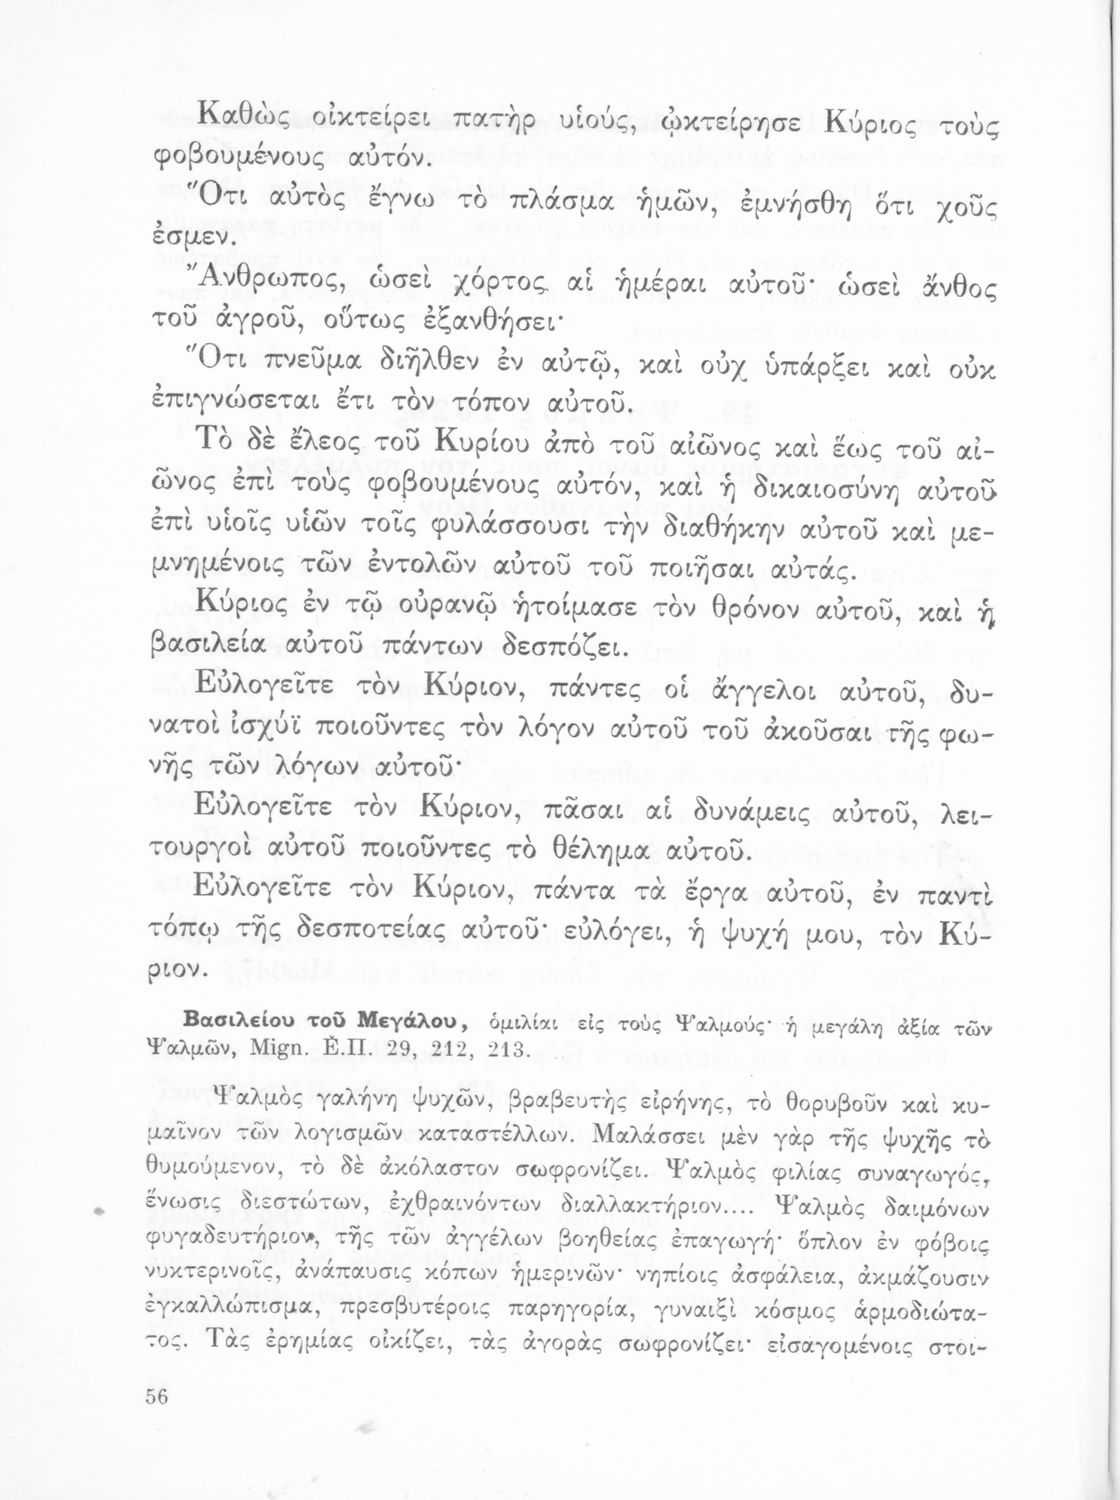 Καθὼς οἰκτείρει πατὴρ υἱούς, ᾠκτείρησε Κύριος τοὺς
φοβουμένους αὐτόν.
Ὅτι αὐτὸς ἔγνω τὸ πλάσμα ἡμῶν, ἐμνήσθη ὅτι χοῦς
ἐσμεν.
Ἄνθρωπος, ὡσεὶ χόρτος, αἱ ἡμέραι αὐτοῦ· ὡσεὶ ἄνθος
τοῦ ἀγροῦ, οὕτως ἐξανθήσει·
Ὅτι πνεῦμα διῆλθεν ἐν αὐτῷ, καὶ οὐχ ὑπάρξει καὶ οὐκ
ἐπιγνώσεται ἔτι τὸν τόπον αὐτοῦ.
Τὸ δὲ ἔλεος τοῦ Κυρίου ἀπὸ τοῦ αἰῶνος καὶ ἕως τοῦ αἰ-
ῶνος ἐπὶ τοὺς φοβουμένους αὐτόν, καὶ ἡ δικαιοσύνη αὐτοῦ
ἐπὶ υἱοῖς υἱῶν τοῖς φυλάσσουσι τὴν διαθήκην αὐτοῦ καὶ με-
μνημένοις τῶν ἐντολῶν αὐτοῦ τοῦ ποιῆσαι αὐτάς.
Κύριος ἐν τῷ οὐρανῷ ἡτοίμασε τὸν θρόνον αὐτοῦ, καὶ ἡ
βασιλεία αὐτοῦ πάντων δεσπόζει.
Εὐλογεῖτε τὸν Κύριον, πάντες οἱ ἄγγελοι αὐτοῦ, δυ-
νατοὶ ἰσχύϊ ποιοῦντες τὸν λόγον αὐτοῦ τοῦ ἀκοῦσαι τῆς φω-
νῆς τῶν λόγων αὐτοῦ·
Εὐλογεῖτε τὸν Κύριον, πᾶσαι αἱ δυνάμεις αὐτοῦ, λει-
τουργοὶ αὐτοῦ ποιοῦντες τὸ θέλημα αὐτοῦ.
Εὐλογεῖτε τὸν Κύριον, πάντα τὰ ἔργα αὐτοῦ, ἐν παντὶ
τόπῳ τῆς δεσποτείας αὐτοῦ· εὐλόγει, ἡ ψυχή μου, τὸν Κύ-
ριον.
Βασιλείου τοῦ Μεγάλου, ὁμιλίαι εἰς τοὺς Ψαλμούς· ἡ μεγάλη ἀξία τῶν
Ψαλμῶν, Mign. Ἐ.Π. 29, 212, 213.
Ψαλμὸς γαλήνη ψυχῶν, βραβευτὴς εἰρήνης, τὸ θορυβοῦν καὶ κυ-
μαῖνον τῶν λογισμῶν καταστέλλων. Μαλάσσει μὲν γὰρ τῆς ψυχῆς τὸ
θυμούμενον, τὸ δὲ ἀκόλαστον σωφρονίζει. Ψαλμὸς φιλίας συναγωγός,
ἕνωσις διεστώτων, ἐχθραινόντων διαλλακτήριον.... Ψαλμὸς δαιμόνων
φυγαδευτήριον, τῆς τῶν ἀγγέλων βοηθείας ἐπαγωγή· ὅπλον ἐν φόβοις
νυκτερινοῖς, ἀνάπαυσις κόπων ἡμερινῶν· νηπίοις ἀσφάλεια, ἀκμάζουσιν
ἐγκαλλώπισμα, πρεσβυτέροις παρηγορία, γυναιξὶ κόσμος ἁρμοδιώτα-
τος. Τὰς ἐρημίας οἰκίζει, τὰς ἀγορὰς σωφρονίζει· εἰσαγομένοις στοι-
56